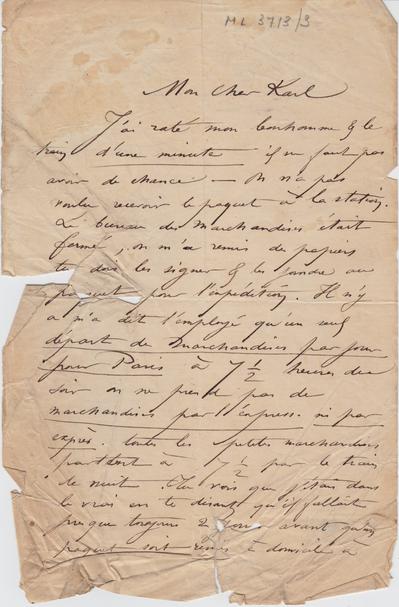 ML 37.13/3
Mon cher Karl
J'ai raté mon bonhomme & le
train d'une minute il ne faut pas
avoir de chance — On n'a pas
voulu recevoir le paquet à la station.
Le bureau des Marchandises était
fermé, on m'a remis des papiers
tu dois les signer & les joindre au
pour l'expédition. Il n'y
a m'a dit l'employé qu'un seul
départ de Marchandises par jour
pour Paris à 7½ heures du
soir on ne prend pas de
marchandises par l'express. ni par
exprès. toutes les petites marchandises
partent à 7½ par le train
de nuit. Tu vois que j'étais dans
le vrai en te disant qu'il fallait
presque toujours 2 jours avant qu'un
paquet soit remis à domicile à